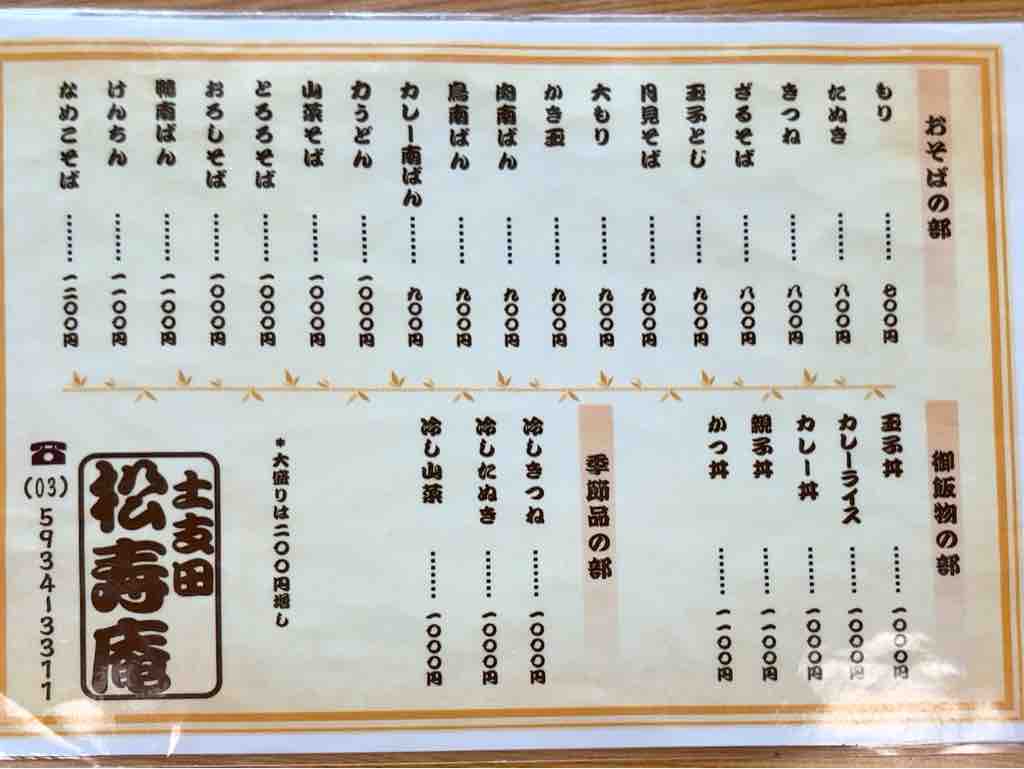 おそばの部
もり ……… 七〇〇円
たぬき ……… 八〇〇円
きつね ……… 八〇〇円
ざるそば ……… 八〇〇円
玉子とじ ……… 九〇〇円
月見そば ……… 九〇〇円
大もり ……… 九〇〇円
かき玉 ……… 九〇〇円
肉南ばん ……… 九〇〇円
鳥南ばん ……… 九〇〇円
カレー南ばん ……… 九〇〇円
力うどん ……… 一〇〇〇円
山菜そば ……… 一〇〇〇円
とろろそば ……… 一〇〇〇円
おろしそば ……… 一〇〇〇円
鴨南ばん ……… 一一〇〇円
けんちん ……… 一一〇〇円
なめこそば ……… 一二〇〇円
御飯物の部
玉子丼 ……… 一〇〇〇円
カレーライス ……… 一〇〇〇円
カレー丼 ……… 一〇〇〇円
親子丼 ……… 一一〇〇円
かつ丼 ……… 一一〇〇円
季節品の部
冷しきつね ……… 一〇〇〇円
冷したぬき ……… 一〇〇〇円
冷し山菜 ……… 一〇〇〇円
*大盛りは二〇〇円増し
土支田
松寿庵
☎(03)5934-3311